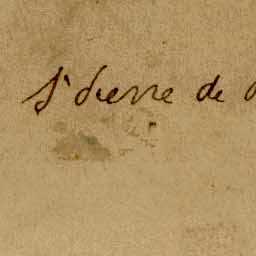 St pierre de